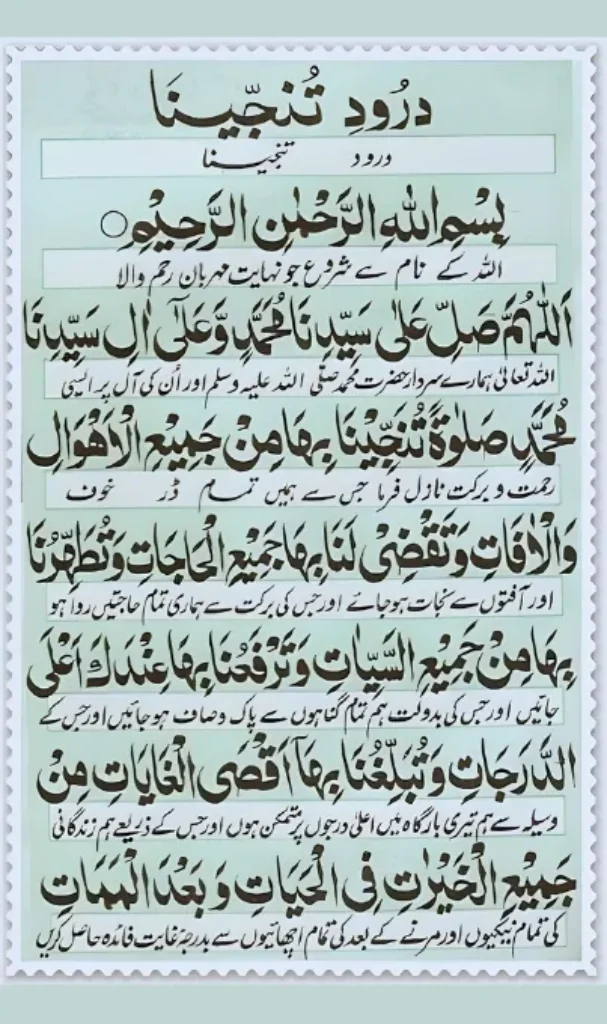 دُرُودِ تُنَجِّيْنَا
درود تنجینا
بِسْمِ اللهِ الرَّحْمٰنِ الرَّحِيْمِ○
اللہ کے نام سے شروع جو نہایت مہربان رحم والا
اَللّٰهُمَّ صَلِّ عَلٰى سَيِّدِنَا مُحَمَّدٍ وَّعَلٰٓى اٰلِ سَيِّدِنَا
اللہ تعالیٰ ہمارے سردار حضرت محمد صلی اللہ علیہ وسلم اور اُن کی آل پر ایسی
مُحَمَّدٍ صَلٰوةً تُنَجِّيْنَا بِهَا مِنْ جَمِيْعِ الْاَهْوَالِ
رحمت و برکت نازل فرما جس سے ہمیں تمام ڈر خوف
وَالْاٰفَاتِ وَتَقْضِىْ لَنَا بِهَا جَمِيْعِ الْحَاجَاتِ وَتُطَهِّرُنَا
اور آفتوں سے نجات ہوجائے اور جس کی برکت سے ہماری تمام حاجتیں روا ہو
بِهَا مِنْ جَمِيْعِ السَّيِّاٰتِ وَتَرْفَعُنَا بِهَا عِنْدَكَ اَعْلَى
جائیں اور جس کی بدولت ہم تمام گناہوں سے پاک وصاف ہوجائیں اور جس کے
الدَّرَجَاتِ وَتُبَلِّغُنَا بِهَآ اَقْصَى الْغَايَاتِ مِنْ
وسیلہ سے ہم تیری بارگاہ میں اعلیٰ درجوں پر متمکن ہوں اور جس کے ذریعے ہم زندگانی
جَمِيْعِ الْخَيْرٰتِ فِى الْحَيَاتِ وَبَعْدَ الْمَمَاتِ
کی تمام نیکیوں اور مرنے کے بعد کی تمام اچھائیوں سے بدرجۂ غایت فائدہ حاصل کریں